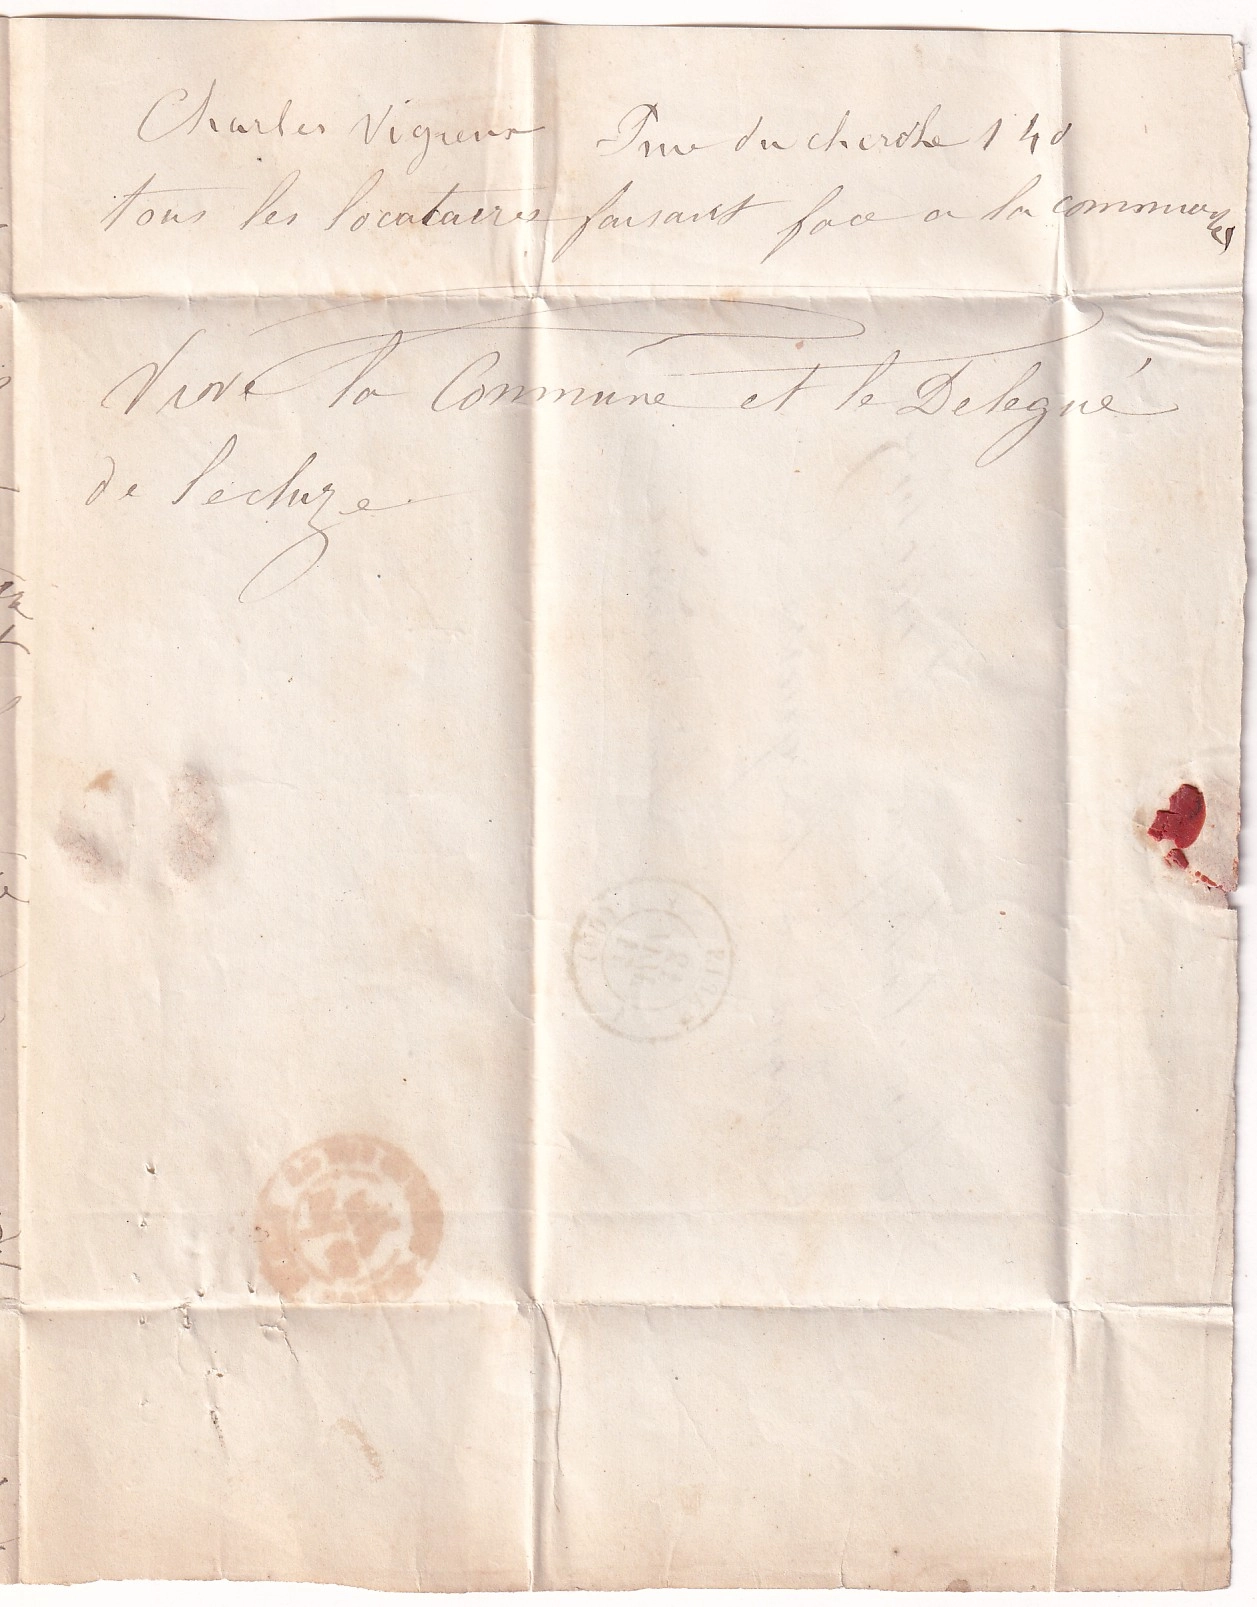 Charles Vigneux rue du cherche 140
tous les locataires faisant face a la commune
Vive la Commune et le Delegué
de lecluze